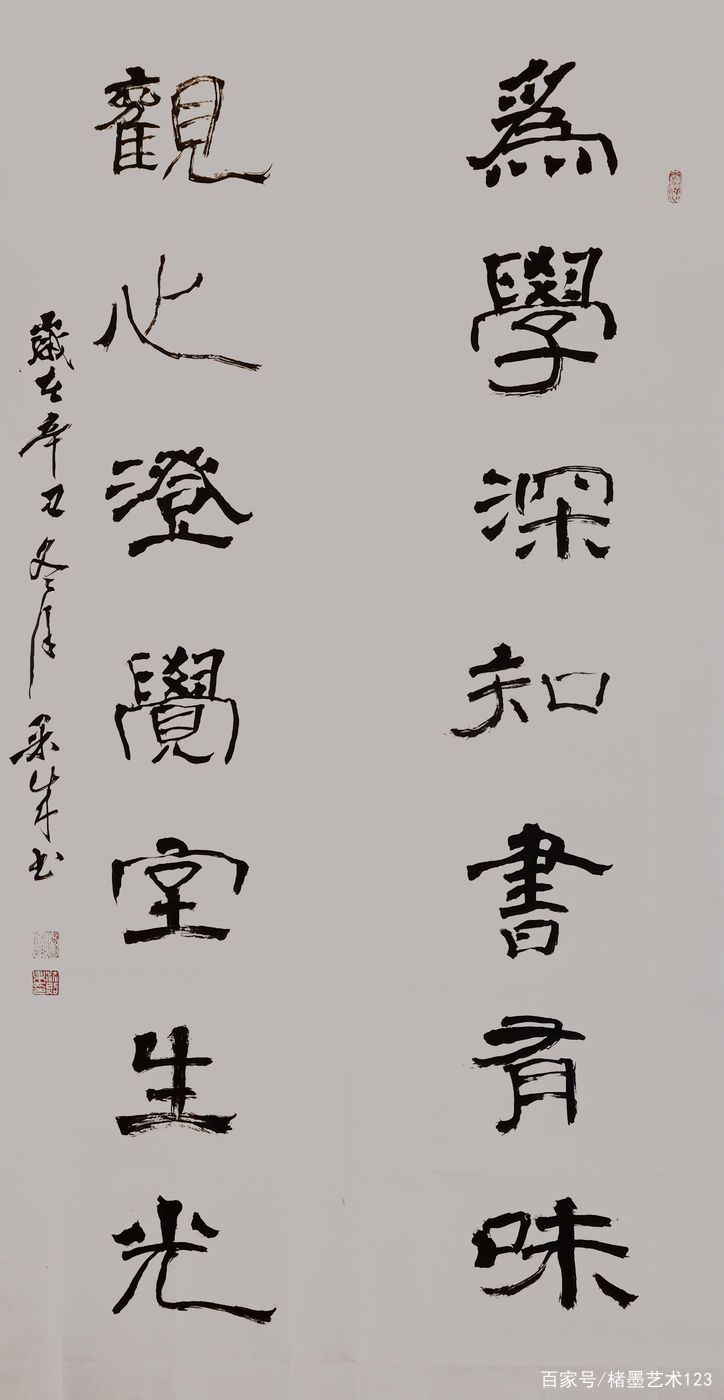 爲學深知書有味
觀心澄覺室生光
歲在辛丑冬月 采成书
百家号/楮墨艺术123